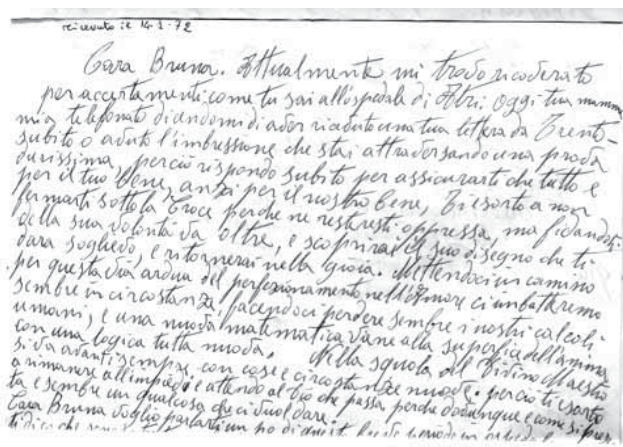 ricevuto il 14-1-72
Cara Bruna. Attualmente mi trovo ricoverato
per accertamenti come tu sai all'ospedale di Atri. oggi tua mamma
mia telefonato dicendomi di aver ricevuto una tua lettera da Trento -
subito o avuto l'imbressione che stai attraversando una prova
durissima, perciò rispondo subito per assicurarti che tutto è
per il tuo bene, anzi per il nostro bene, Ti esorto a non
fermarti sotto la Croce perche ne resteresti oppressa, ma fidandoti
della sua volontà va oltre, e scoprirai il suo disegno che ti
dara sogliedo, e ritornerai nella gioia. Mettendoci in camino
per questa via ardua del perfezionamento nell'Amore ci imbatteremo
sembre in circostanze, facendoci perdere sembre i nostri calcoli
umani, e una nuova matematica viene alla superficie dell'anima
con una logica tutta nuova. Nella squola del Divino Maestro
si va avanti sempre, con cose e circostanze nuove. perciò ti esorto
a rimanere all'impiedi e attendo al Dio che passa, perche dovunque e come si presen
ta e sembre un qualcosa che ci vuol dare.
Cara Bruna voglio parlarti un po di